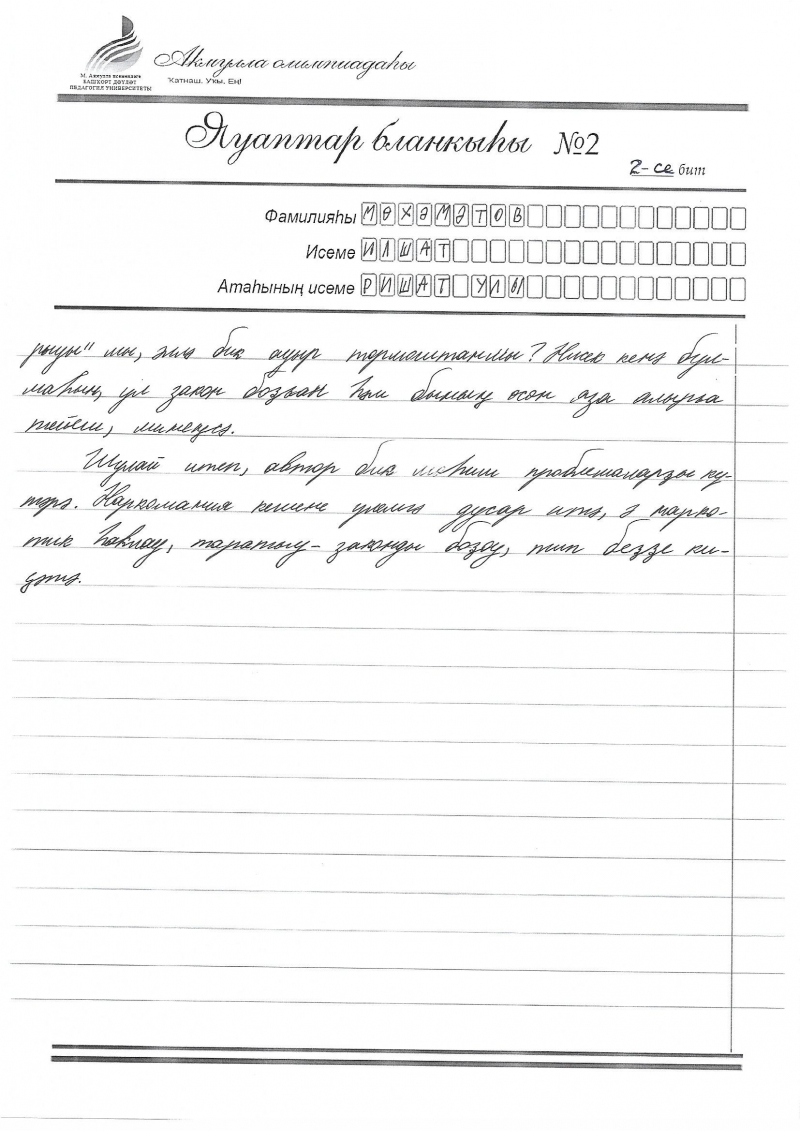 М. Акмулла исемендәге
БАШКОРТ ДӘҮЛӘТ
ПЕДАГОГИЯ УНИВЕРСИТЕТЫ
Акмулла олимпиадаһы
Ҡатнаш. Уҡы. Ең!
Яуаптар бланкыһы №2
2-се бит
Фамилияһы МӨХӘМӘТОВ
Исеме ИЛШАТ
Атаһының исеме РИШАТ УЛЫ
рыуы" мы, әллә бик ауыр тормоштанмы? Нисек кенә бул-
маһын, ул закон боҙған һәм бының өсөн яза алырға
тейеш, минеңсә.
Шулай итеп, автор бик мөһим проблемаларҙы кү-
тәрә. Наркомания кешене үлемгә дусар итә, ә нарко-
тик һаҡлау, таратыу- законды боҙоу, тип беҙҙе ки-
ҫәтә.